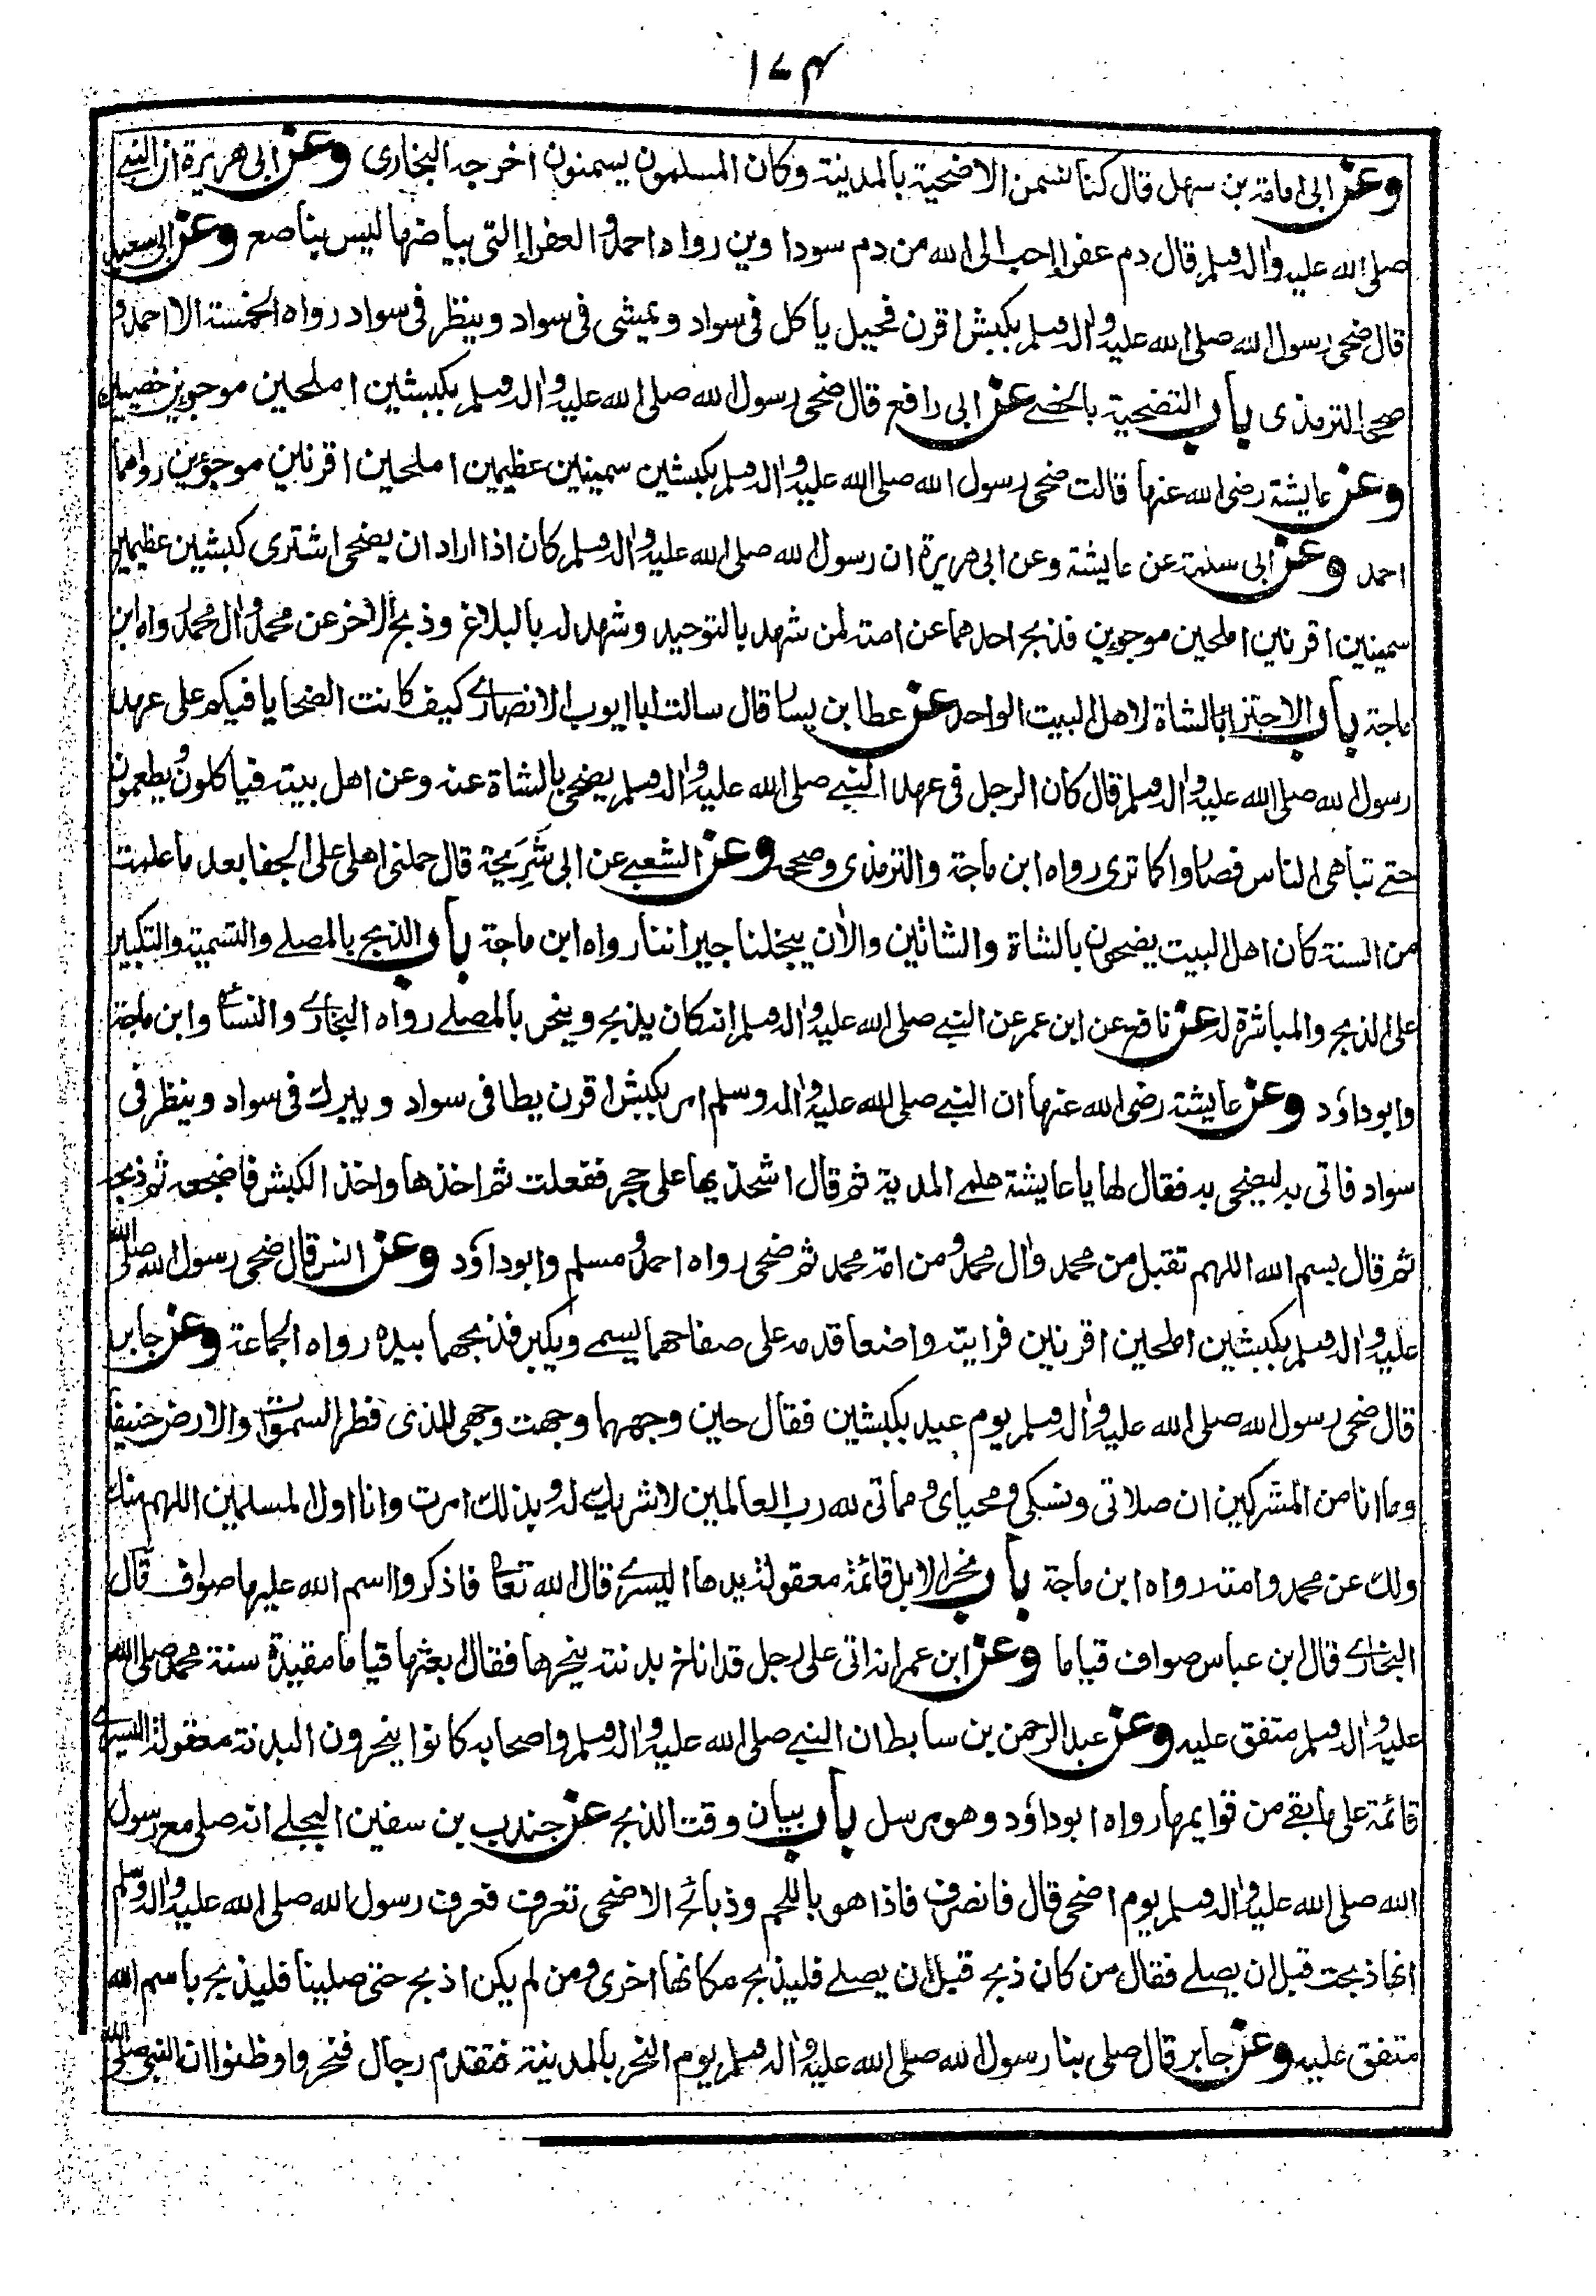 ١٧٤
وعن ابى امامة بن سهل قال كنا نسمن الاضحية بالمدينة وكان المسلمون يسمنون اخرجه البخارى وعن ابى هريرة ان النبى
صلى الله عليه واله وسلم قال دم عفرا احب الى الله من دم سوداوين رواه احمد و العفرا التى بياضها ليس بناصع وعن ابى سعيد
قال ضحى رسول الله صلى الله عليه واله وسلم بكبش اقرن فحيل يأكل فى سواد ويمشى فى سواد وينظر فى سواد رواه الخمسة الا احمد و
صححه الترمذى باب التضحية بالخصى عن ابى رافع قال ضحى رسول الله صلى الله عليه واله وسلم بكبشين املحين موجوين خصيين
وعن عايشة رضى الله عنها قالت ضحى رسول الله صلى الله عليه واله وسلم بكبشين سمينين عظيمين املحين اقرنين موجؤين رواهما
احمد وعن ابى سلمة عن عايشة وعن ابى هريرة ان رسول الله صلى الله عليه واله وسلم كان اذا اراد ان يضحى اشترى كبشين عظيمين
سمينين اقرنين املحين موجوين فذبح احدهما عن امته لمن شهد بالتوحيد وشهد له بالبلاغ وذبح الاخر عن محمد وال محمد رواه ابن
ماجة باب الاجتزا بالشاة لاهل البيت الواحد عن عطا بن يسار قال سالت ابا ايوب الانصارى كيف كانت الضحايا فيكم على عهد
رسول الله صلى الله عليه واله وسلم قال كان الرجل فى عهد النبى صلى الله عليه واله وسلم يضحى بالشاة عنه وعن اهل بيته فيأكلون ويطعمون
حتى تباهى الناس فصاروا كما ترى رواه ابن ماجة والترمذى وصححه وعن الشعبى عن ابى شَرِيحة قال حملنى اهلى على الجفا بعد ما علمت
من السنة كان اهل البيت يضحون بالشاة والشاتين والان يبخلنا جيراننا رواه ابن ماجة باب الذبح بالمصلى والتسمية والتكبير
على الذبح والمباشرة له عن نافع عن ابن عمر عن النبى صلى الله عليه واله وسلم انه كان يذبح وينحر بالمصلى رواه البخارى والنسائى وابن ماجة
وابوداؤد وعن عايشة رضى الله عنها ان النبى صلى الله عليه واله وسلم امر بكبش اقرن يطا فى سواد ويبرك فى سواد وينظر فى
سواد فاتى به ليضحى به فقال لها يا عايشة هلمى المدية ثم قال اشحذيها على حجر ففعلت ثم اخذها واخذ الكبش فاضجعه ثم ذبحه
ثم قال بسم الله اللهم تقبل من محمد وال محمد ومن امة محمد ثم ضحى رواه احمد و مسلم وابوداؤد وعن انس قال ضحى رسول الله صلى الله
عليه واله وسلم بكبشين املحين اقرنين فرايته واضعا قدمه على صفاحهما يسمى ويكبر فذبحهما بيده رواه الجماعة وعن جابر
قال ضحى رسول الله صلى الله عليه واله وسلم يوم عيد بكبشين فقال حين وجههما وجهت وجهى للذى فطر السموات والارض حنيفا
وما انا من المشركين ان صلاتى ونسكى ومحياى ومماتى لله رب العالمين لا شريك له وبذلك امرت وانا اول المسلمين اللهم منك
ولك عن محمد وامته رواه ابن ماجة باب نحر الابل قائمة معقولة يدها اليسرى قال الله تعالى فاذكروا اسم الله عليها صواف قال
البخارى قال ابن عباس صواف قياما وعن ابن عمر انه اتى على رجل قد اناخ بدنته ينحرها فقال ابعثها قياما مقيدة سنة محمد صلى الله
عليه واله وسلم متفق عليه وعن عبد الرحمن بن سابط ان النبى صلى الله عليه واله وسلم واصحابه كانوا ينحرون البدنة معقولة اليسرى
قائمة على ما بقى من قوايمها رواه ابوداؤد وهو مرسل باب بيان وقت الذبح عن جندب بن سفين البجلى انه صلى مع رسول
الله صلى الله عليه واله وسلم يوم اضحى قال فانصرف فاذا هو باللحم وذبائح الاضحى تعرف فعرف رسول الله صلى الله عليه واله وسلم
انها ذبحت قبل ان يصلى فقال من كان ذبح قبل ان يصلى فليذبح مكانها اخرى ومن لم يكن اذبح حتى صلينا فليذبح باسم الله
متفق عليه وعن جابر قال صلى بنا رسول الله صلى الله عليه واله وسلم يوم النحر بالمدينة فتقدم رجال فنحروا وظنوا ان النبى صلى الله